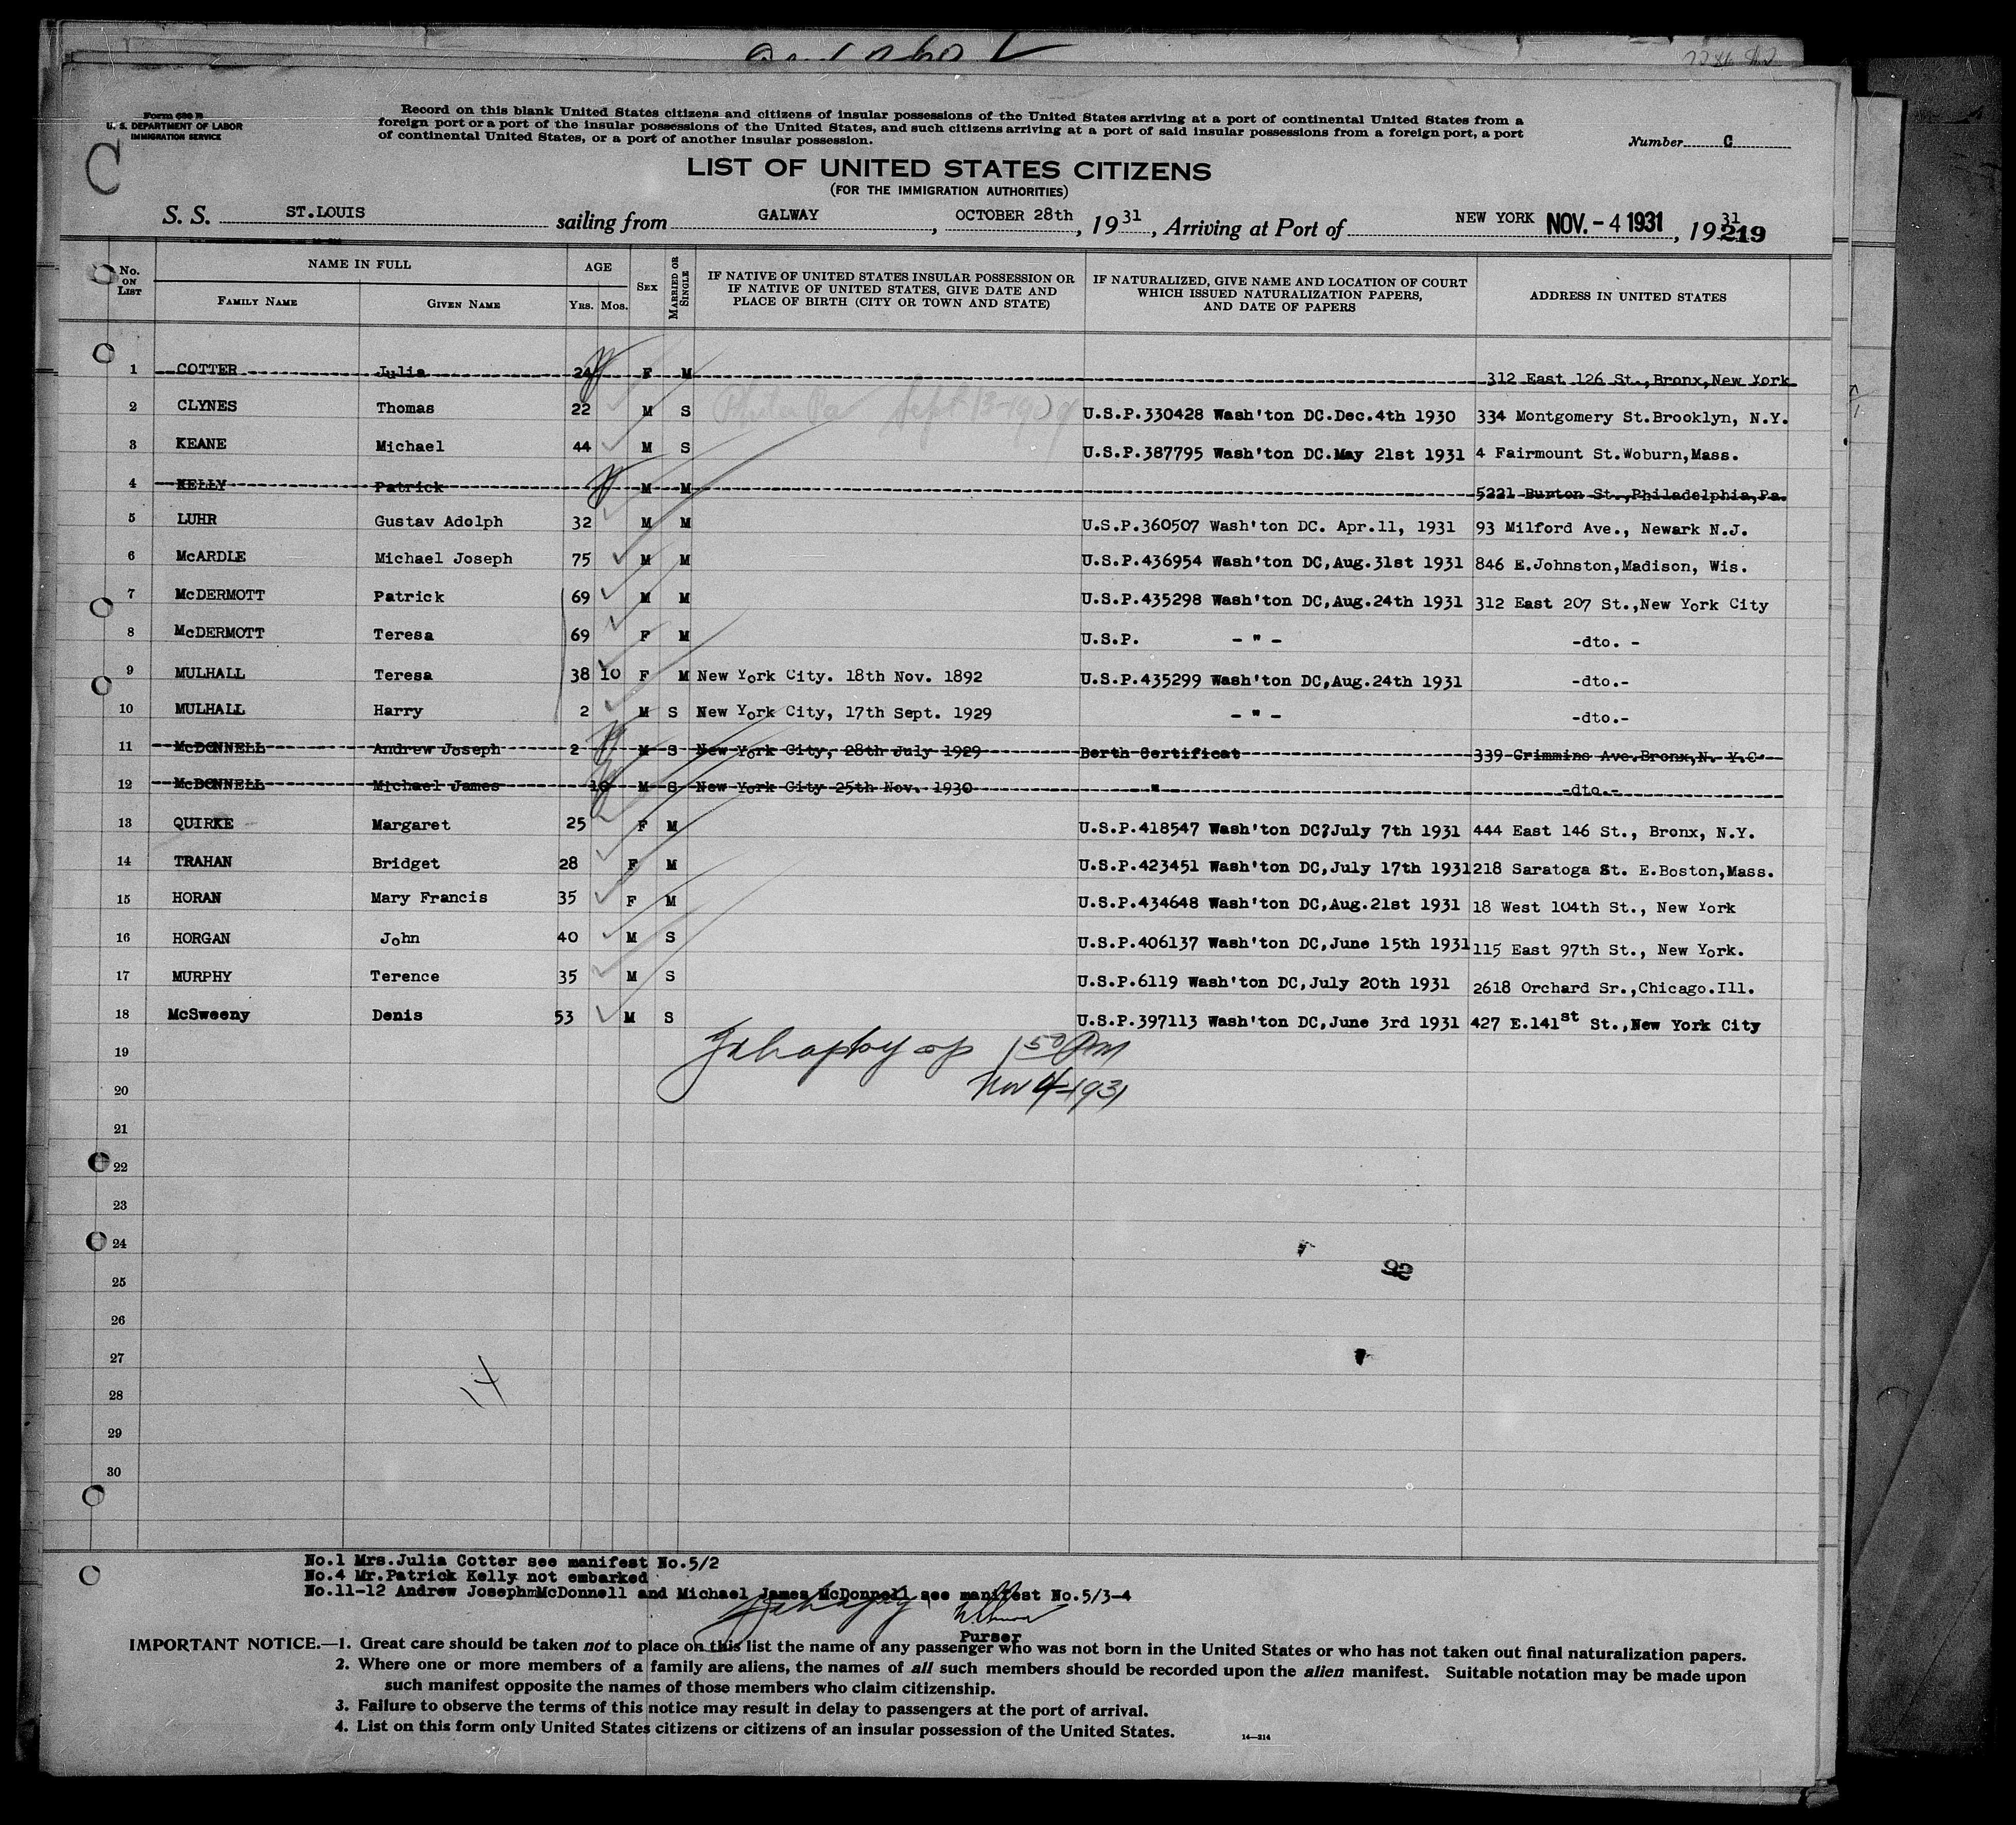 Form 630 B
U. S. DEPARTMENT OF LABOR
IMMIGRATION SERVICE
C
Record on this blank United States citizens and citizens of insular possessions of the United States arriving at a port of continental United States from a
foreign port or a port of the insular possessions of the United States, and such citizens arriving at a port of said insular possessions from a foreign port, a port
of continental United States, or a port of another insular possession.
Number C
LIST OF UNITED STATES CITIZENS
(FOR THE IMMIGRATION AUTHORITIES)
S. S. ST.LOUIS sailing from GALWAY, OCTOBER 28th, 19 31, Arriving at Port of NEW YORK NOV. - 4 1931, 19 31 219
No. ON LIST NAME IN FULL FAMILY NAME GIVEN NAME AGE YRS. MOS. SEX MARRIED OR SINGLE IF NATIVE OF UNITED STATES INSULAR POSSESSION OR IF NATIVE OF UNITED STATES, GIVE DATE AND PLACE OF BIRTH (CITY OR TOWN AND STATE) IF NATURALIZED, GIVE NAME AND LOCATION OF COURT WHICH ISSUED NATURALIZATION PAPERS, AND DATE OF PAPERS ADDRESS IN UNITED STATES
1 COTTER Julia 24 F M 312 East 126 St.,Bronx,New York
2 CLYNES Thomas 22 M S Phila Pa Sept 13-1909 U.S.P.330428 Wash'ton DC.Dec.4th 1930 334 Montgomery St.Brooklyn, N.Y.
3 KEANE Michael 44 M S U.S.P.387795 Wash'ton DC.May 21st 1931 4 Fairmount St.Woburn,Mass.
4 KELLY Patrick M M 5221 Burton St.,Philadelphia,Pa.
5 LUHR Gustav Adolph 32 M M U.S.P.360507 Wash'ton DC. Apr.11, 1931 93 Milford Ave., Newark N.J.
6 McARDLE Michael Joseph 75 M M U.S.P.436954 Wash'ton DC,Aug.31st 1931 846 E.Johnston,Madison, Wis.
7 McDERMOTT Patrick 69 M M U.S.P.435298 Wash'ton DC,Aug.24th 1931 312 East 207 St.,New York City
8 McDERMOTT Teresa 69 F M U.S.P. - " - -dto. -
9 MULHALL Teresa 38 10 F M New York City. 18th Nov. 1892 U.S.P.435299 Wash'ton DC,Aug.24th 1931 -dto.-
10 MULHALL Harry 2 M S New York City, 17th Sept. 1929 - " - -dto.-
11 McDONNELL Andrew Joseph 2 M S New York City, 28th July 1929 Berth Certificat 339 Crimmins Ave.Bronx,N. Y.C.
12 McDONNELL Michael James 10 M S New York City 25th Nov. 1930 " -dto.-
13 QUIRKE Margaret 25 F M U.S.P.418547 Wash'ton DC?July 7th 1931 444 East 146 St., Bronx, N.Y.
14 TRAHAN Bridget 28 F M U.S.P.423451 Wash'ton DC,July 17th 1931 218 Saratoga St. E.Boston,Mass.
15 HORAN Mary Francis 35 F M U.S.P.434648 Wash'ton DC,Aug.21st 1931 18 West 104th St., New York
16 HORGAN John 40 M S U.S.P.406137 Wash'ton DC,June 15th 1931 115 East 97th St., New York.
17 MURPHY Terence 35 M S U.S.P.6119 Wash'ton DC,July 20th 1931 2618 Orchard Sr.,Chicago.Ill.
18 McSweeny Denis 53 M S U.S.P.397113 Wash'ton DC,June 3rd 1931 427 E.141st St.,New York City
19 150 PM
20 Nov 4-1931
21
22
23
24
25
26
27
28
29
30
14
No.1 Mrs.Julia Cotter see manifest No.5/2
No.4 Mr.Patrick Kelly not embarked
No.11-12 Andrew JosephmMcDonnell and Michael James McDonnell see manifest No.5/3-4
Purser
IMPORTANT NOTICE.—1. Great care should be taken not to place on this list the name of any passenger who was not born in the United States or who has not taken out final naturalization papers.
2. Where one or more members of a family are aliens, the names of all such members should be recorded upon the alien manifest. Suitable notation may be made upon
such manifest opposite the names of those members who claim citizenship.
3. Failure to observe the terms of this notice may result in delay to passengers at the port of arrival.
4. List on this form only United States citizens or citizens of an insular possession of the United States.
14—214